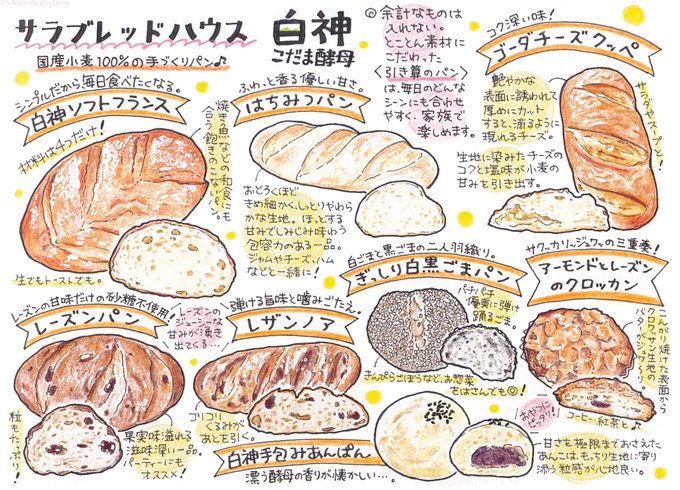 サラブレッドハウス
国産小麦100%の手づくりパン♪
白神
こだま酵母
◎余計なものは
入れない。
とことん素材に
こだわった
〈引き算のパン〉
は、毎日のどんな
シーンにも合わせ
やすく、家族で
楽しめます。
コク深い味!
ゴーダチーズクッペ
艶やかな
表面に誘われて
厚めにカット
すると、滴るように
現れるチーズ。
サラダやスープと!
生地に染みたチーズの
コクと塩味が小麦の
甘みを引き出す。
シンプルだから毎日食べたくなる。
白神ソフトフランス
材料は4つだけ!
焼き魚などの和食にも
合う飽きのこないパン。
生でもトーストでも。
ふわっと香る優しい甘さ。
はちみつパン
おどろくほど
きめ細かく、しっとりやわら
かな生地。ほっとする
甘みでしみじみ味わう
包容力のある一品。
ジャムやチーズ、ハム
などと一緒に!
白ごまと黒ごまの二人羽織り。
ぎっしり白黒ごまパン
パチパチ
優美に弾け
踊るごま。
きんぴらごぼうなど、お惣菜
をはさんでも◎!
サクッカリッジュワッの三重奏!
アーモンドとレーズン
のクロッカン
こんがり焼けた表面から
クロワッサン生地の
バターがジュワリ。
コーヒー、紅茶と♪
レーズンの甘味だけの砂糖不使用!
レーズンパン
レーズンの
ジューシーな
甘みが湧き
出てくる…
粒もたっぷり!
果実味溢れる
滋味深い一品。
パーティーにも
オススメ!
弾ける旨味と噛みごたえ。
レザンノア
コリコリ
くるみが
あとを引く。
白神手包みあんぱん
漂う酵母の香りが懐かしい…。
おやつに
ピッタリ!
甘さを極限までおさえた
あんこは、もっちり生地に寄り
添う粒感が心地良い。